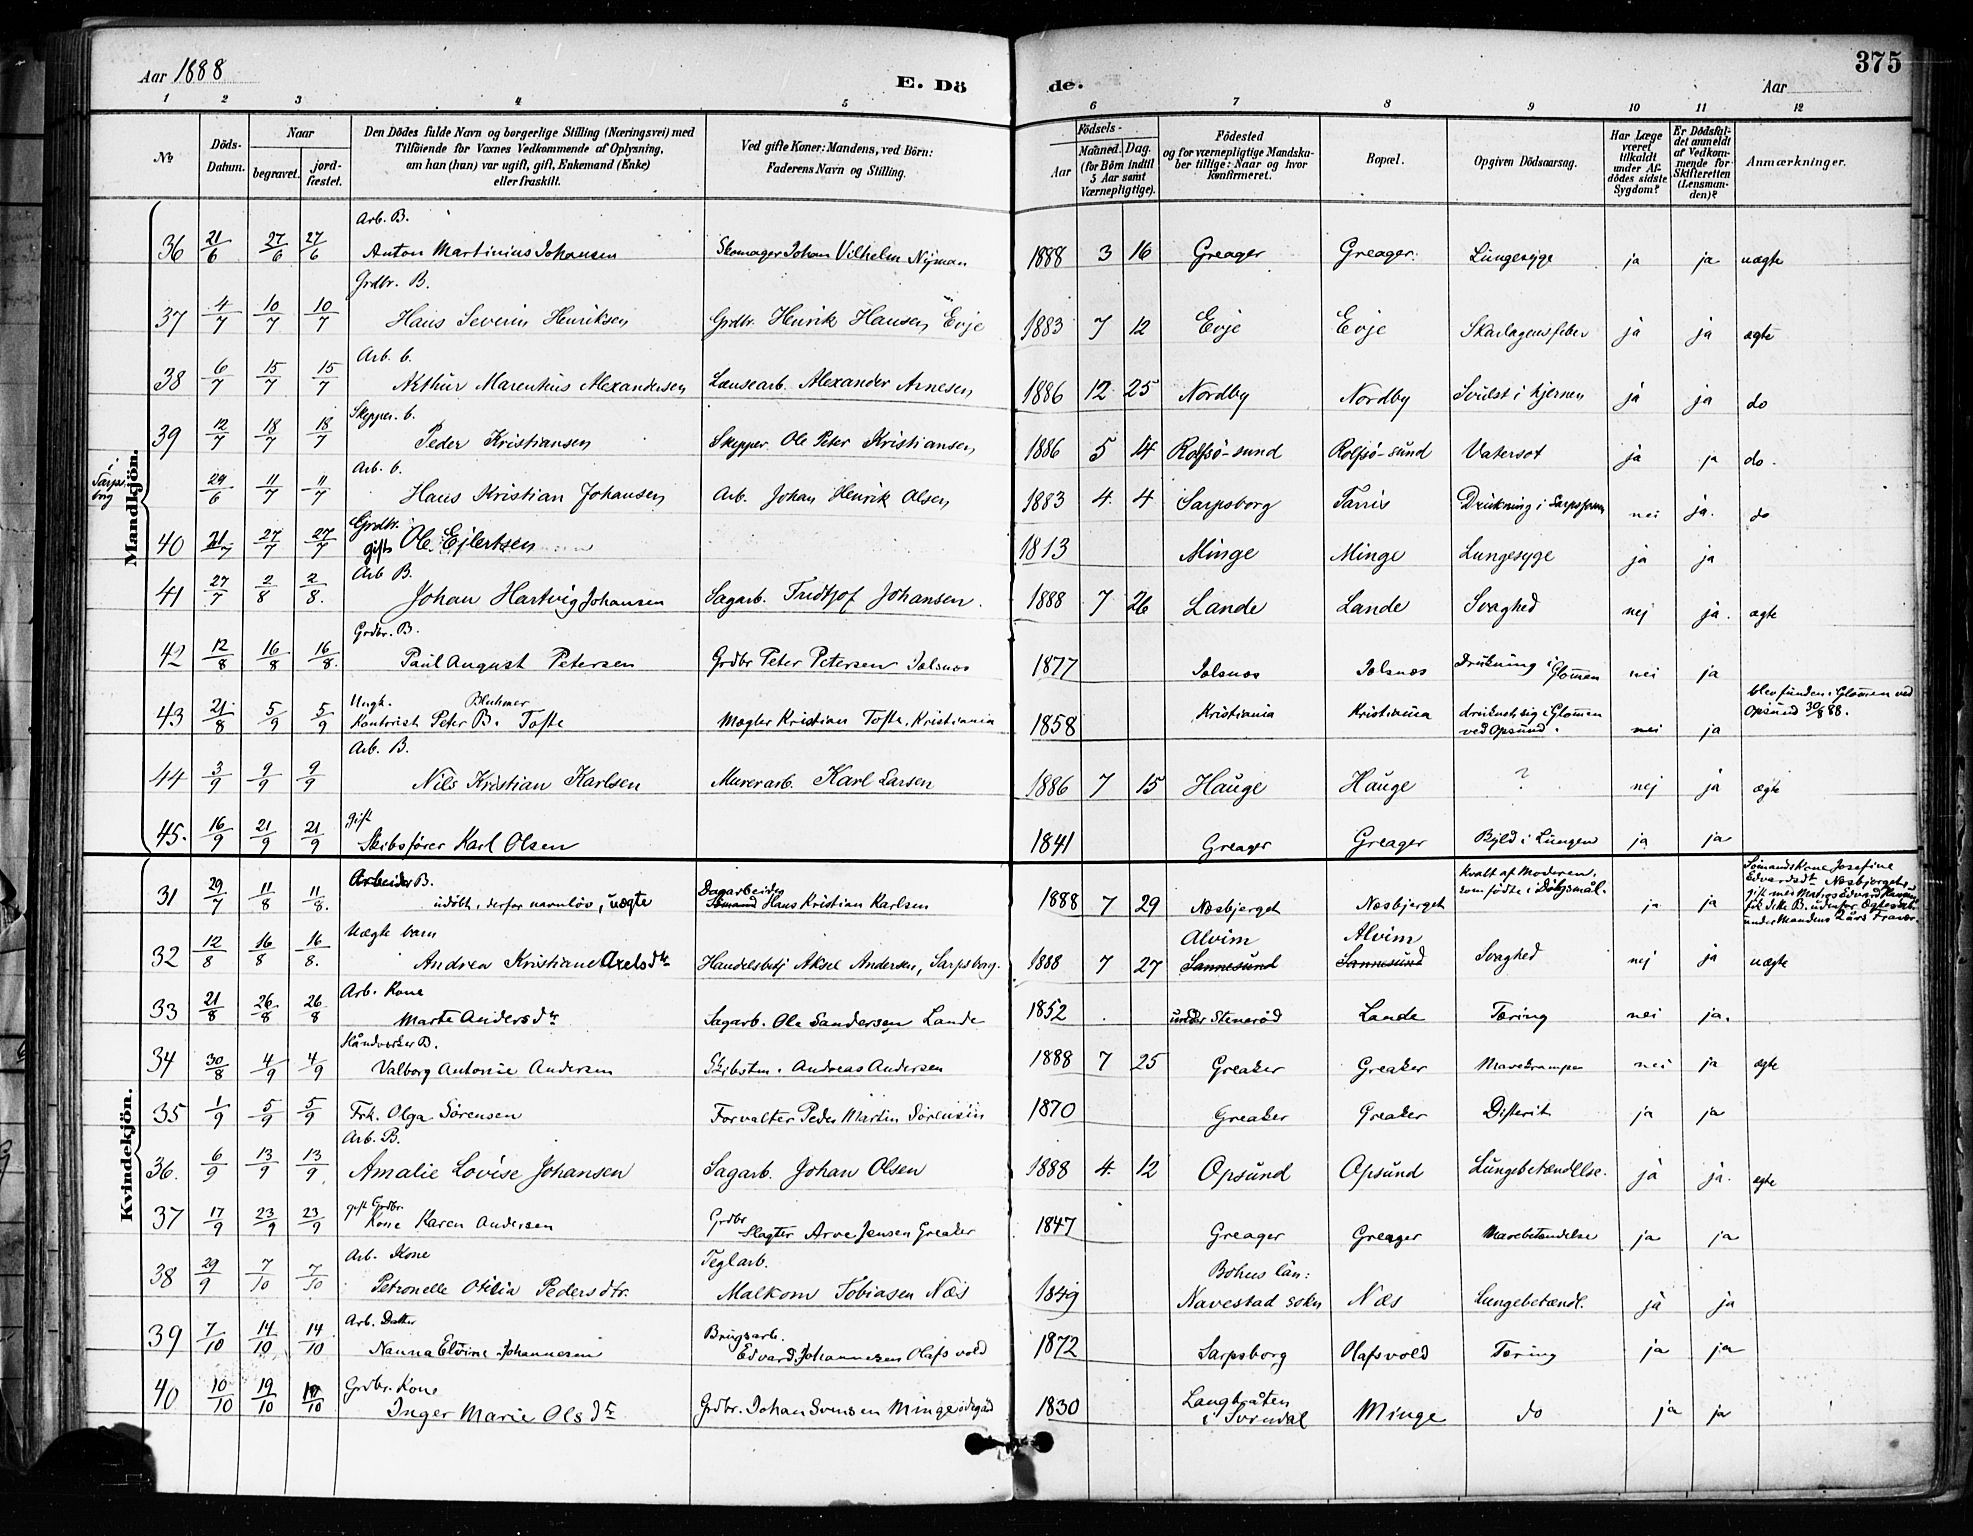 375
Aar 1888
E. Dö
de.
Aar
1 2 3 4 5 6 7 8 9 10 11 12
№
Döds-Datum.
Naar
begravet.
jord-fæstet.
Den Dödes fulde Navn og borgerlige Stilling (Næringsvei) med
Tilföiende for Voxnes Vedkommende af Oplysning,
om han (hun) var ugift, gift, Enkemand (Enke)
eller fraskilt.
Ved gifte Koner: Mandens, ved Börn:
Faderens Navn og Stilling.
Födsels-
Aar
Maaned. Dag.
(for Börn indtil
5 Aar samt
Værnepligtige).
Födested
og for værnepligtige Mandska-
ber tillige: Naar og hvor
konfirmeret.
Bopæl.
Opgiven Dödsaarsag.
Har Læge
været
tilkaldt
under Af-
dödes sidste
Sygdom?
Er Dödsfal-
det anmeldt
af Vedkom-
mende for
Skifteretten
(Lensman-
den)?
Anmærkninger.
Mandkjön.
Arb. B.
36 21/6 27/6 27/6 Anton Martinius Johansen Skomager Johan Vilhelm Nyman 1888 3 16 Greager Greager. Lungesyge ja ja uægte
Grdbr. B.
37 4/7 10/7 10/7 Hans Severin Henriksen Grdbr. Henrik Hansen Evje 1883 7 12 Evje Evje Skarlagensfeber ja ja ægte
Arb. b.
38 6/7 15/7 15/7 Arthur Marentius Alexandersen Lænsearb. Alexander Arnesen 1886 12 25 Nordby Nordby Svulst i hjernen ja ja do
Skipper. b.
39 12/7 18/7 18/7 Peder Kristiansen Skipper Ole Peter Kristiansen 1886 5 14 Rolfsö-sund Rolfsö-sund Vatersot ja ja do.
Arb. b.
i Sarpsborg 29/6 11/7 11/7 Hans Kristian Johansen Arb. Johan Henrik Olsen 1883 4 4 Sarpsborg Tarris Drukning i Sarpsfossen nei ja. do
Grdbr.
40 21/7 27/7 27/7 gift Ole Ejlertsen 1813 Minge Minge Lungesyge ja ja
Arb B.
41 27/7 2/8 2/8. Johan Hartvig Johansen Sagarb. Fridtjof Johansen. 1888 7 26 Lande Lande Svaghed nej ja. ægte
Grdbr. B.
42 12/8 16/8 16/8. Paul August Petersen Grdbr Peter Petersen Jelsnes 1877 Jolsnæs Jolsnæs Drukning i Glommen nei ja
Ungk. Bluhmer
43 21/8 5/9 5/9 Kontorist Peter B. Tofte Mægler Kristian Tofte, Kristiania 1858 Kristiania Kristiania druknet sig i Glommen
ved Opsund. nei ja blev funden i Glommen ved
Opsund 30/8 88.
Arb. B.
44 3/9 9/9 9/9 Nils Kristian Karlsen Murerarb. Karl Larsen 1886 7 15 Hauge Hauge ? nej ja ægte
gift
45. 16/9 21/9 21/9 Skibsförer Karl Olsen 1841 Greager Greager Byld i Lungen ja ja
Kvindekjön.
Arbeider B.
31 29/7 11/8 11/8. udöbt, derfor navnlös, uægte Dagarbeider Sömand Hans Kristian Karlsen 1888 7 29 Næsbjerget Næsbjerget kvalt af Moderen,
som födte i Dölgsmål. ja ja Sömandskone Josefine
Edvardsdtr Næsbjerget,
gift med Matros Edvard
fik dette B. udenfor Ægteskab
under Mandens 2 års Fravær.
Uægte barn
32 12/8 16/8 16/8. Andrea Kristiane Axelsdtr Handelsbetj Aksel Andersen, Sarpsborg. 1888 7 27 Alvim Sannesund Alvim Sannesund Svaghed nej ja uægte
Arb. Kone
33 21/8 26/8 26/8 Marte Andersdtr Sagarb. Ole Sandersen Lande 1852 under Stenerød Lande Tæring nei ja.
Håndverker B.
34 30/8 4/9 4/9 Valborg Antonie Andersen Skibstm. Andreas Andersen 1888 7 25 Greaker Greaker Mavekrampe nei ja ægte
35 1/9 5/9 5/9 Frk. Olga Sörensen Forvalter Peder Martin Sörensen 1870 Greaker Greaker Difterit ja ja
Arb. B.
36. 6/9 13/9 13/9 Amalie Lovise Johansen Sagarb. Johan Olsen 1888 4 12 Opsund Opsund Lungebetændelse. ja ja. ægte
gift Grdbr.
37 17/9 23/9 23/9 Kone Karen Andersen Grdbr Slagter Arve Jensen Greaker 1847 Greager Greager Mavebetændelse ja ja
Arb. Kone
38 29/9 7/10 7/10 Petronelle Otilia Pedersdtr. Teglarb. Malkom Tobiasen Næs 1849 Bohus län: Navestad sokn Næs Lungebetændl. ja ja
Arb. Datter
39 7/10 14/10 14/10 Nanna Elvine Johannesen Brugsarb. Edvard Johannesen Olafsvold 1872 Sarpsborg Olafsvold Tæring ja ja
Grdbr. Kone
40 10/10 19/10 19/10 Inger Marie Olsdtr Grdbr. Johan Svensen Minge ödegård 1830 Langbråten
i Svindal Minge do ja ja